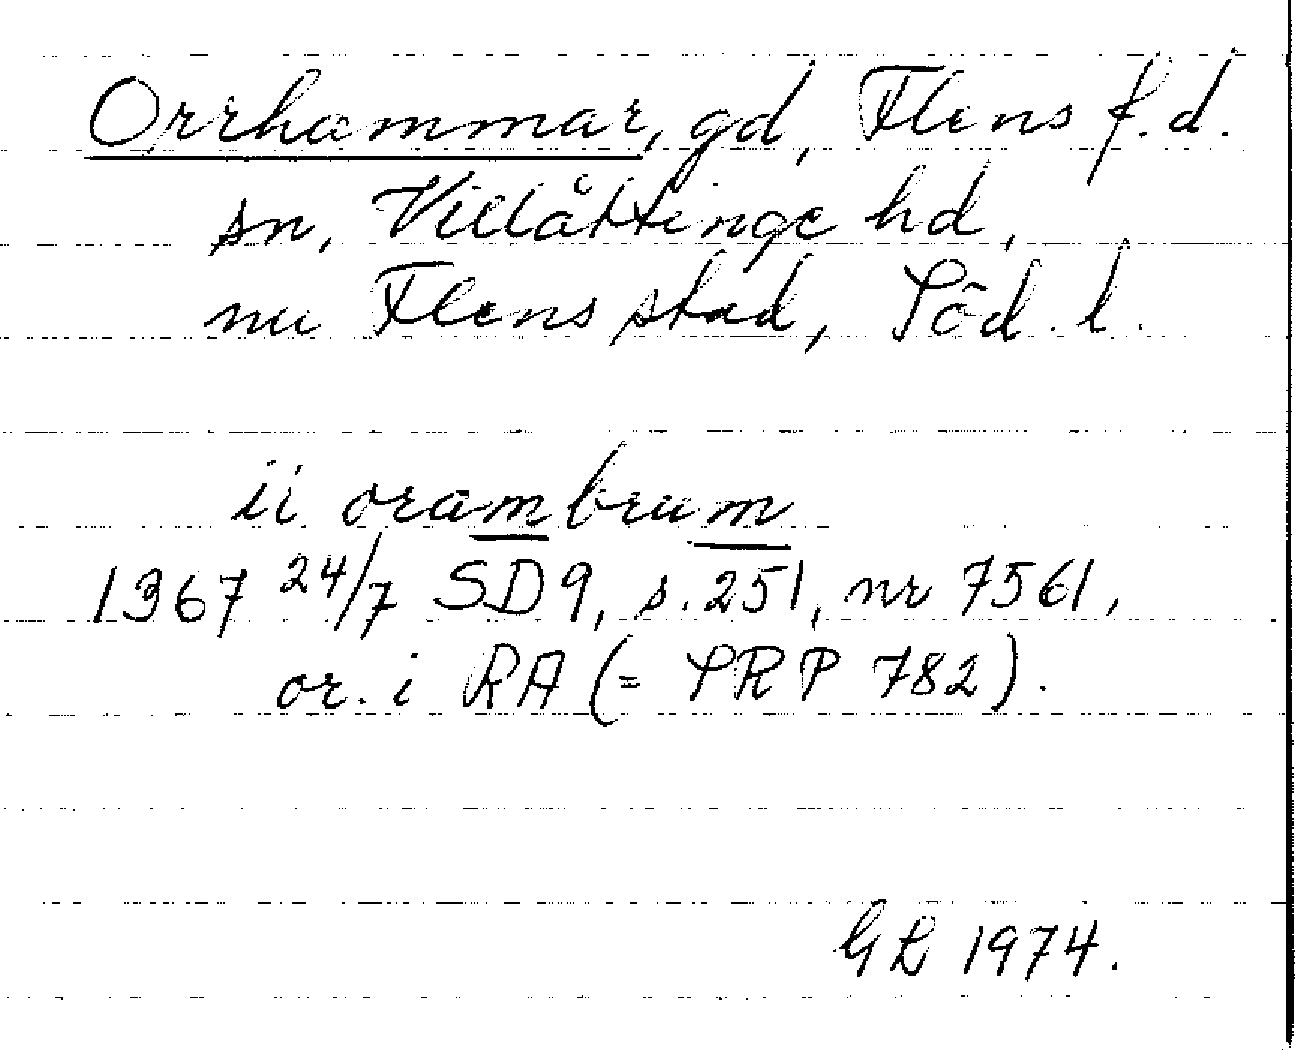 Orrhammar, gd, Flens f.d.
sn, Villåttinge hd,
nu Flens stad, Söd. l.
ii orambrum
1367 24/7 SD9, s. 251, nr 7561,
or. i RA (= SRP 782).
GL 1974.